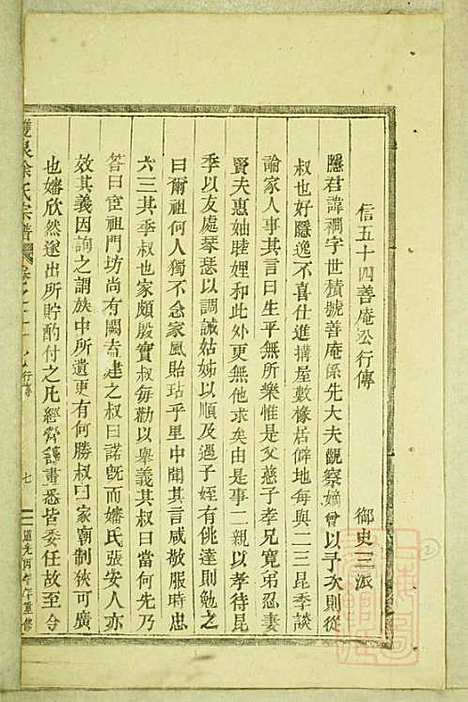 信五十四善庵公行傳
御史三派
隱君諱禂字世積號善庵係先大夫觀察嫡曾以予次則從
叔也好隱逸不喜仕進搆屋數椽居僻地每與二三昆季談
論家人事其言曰生平所樂惟是父慈子孝兄寬弟忍妻
賢夫惠妯睦娌和此外更無他求矣由是事二親以孝待昆
季以友處琴瑟以調諴姑姊以順及過子姪有佻達則勉之
曰爾祖何人獨不念家風貽玷乎里中聞其言咸敬服時忠
六三其季叔也家頗殷實叔每勸以舉義其叔曰當何先乃
答曰宦祖門坊尚有闕盍建之叔曰諾旣而嬸氏張安人亦
效其義因詢之謂族中所遺更有何勝叔曰家廟制狹可廣
也嬸欣然遂出所貯酌付之凡經費謀畫悉皆委任故至今
徐氏宗譜
行傳
七